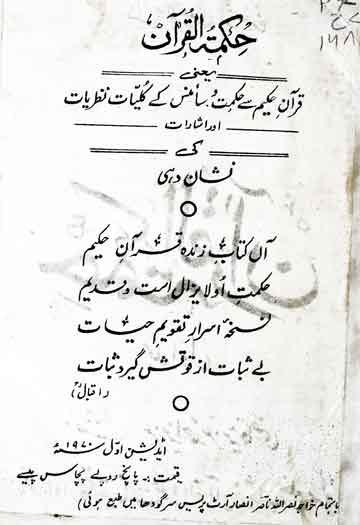 حکمۃ القرآن
یعنی
قرآن حکیم سے حکمت و سائنس کے کلیات نظریات
اور اشارات
کی
نشان دہی
آں کتاب زندہ قرآن حکیم
حکمت اُو لا یزال است و قدیم
نسخۂ اسرارِ تقویم حیات
بے ثبات از قوتش گیرد ثبات
(اقبالؒ)
ایڈیشن اوّل ۱۹۷۰ سنہ
قیمت :۔ پانچ روپے پچاس پیسے
باہتمام خواجہ نصر اللہ ناصر انصار آرٹ پریس سرگودھا میں طبع ہوئی)